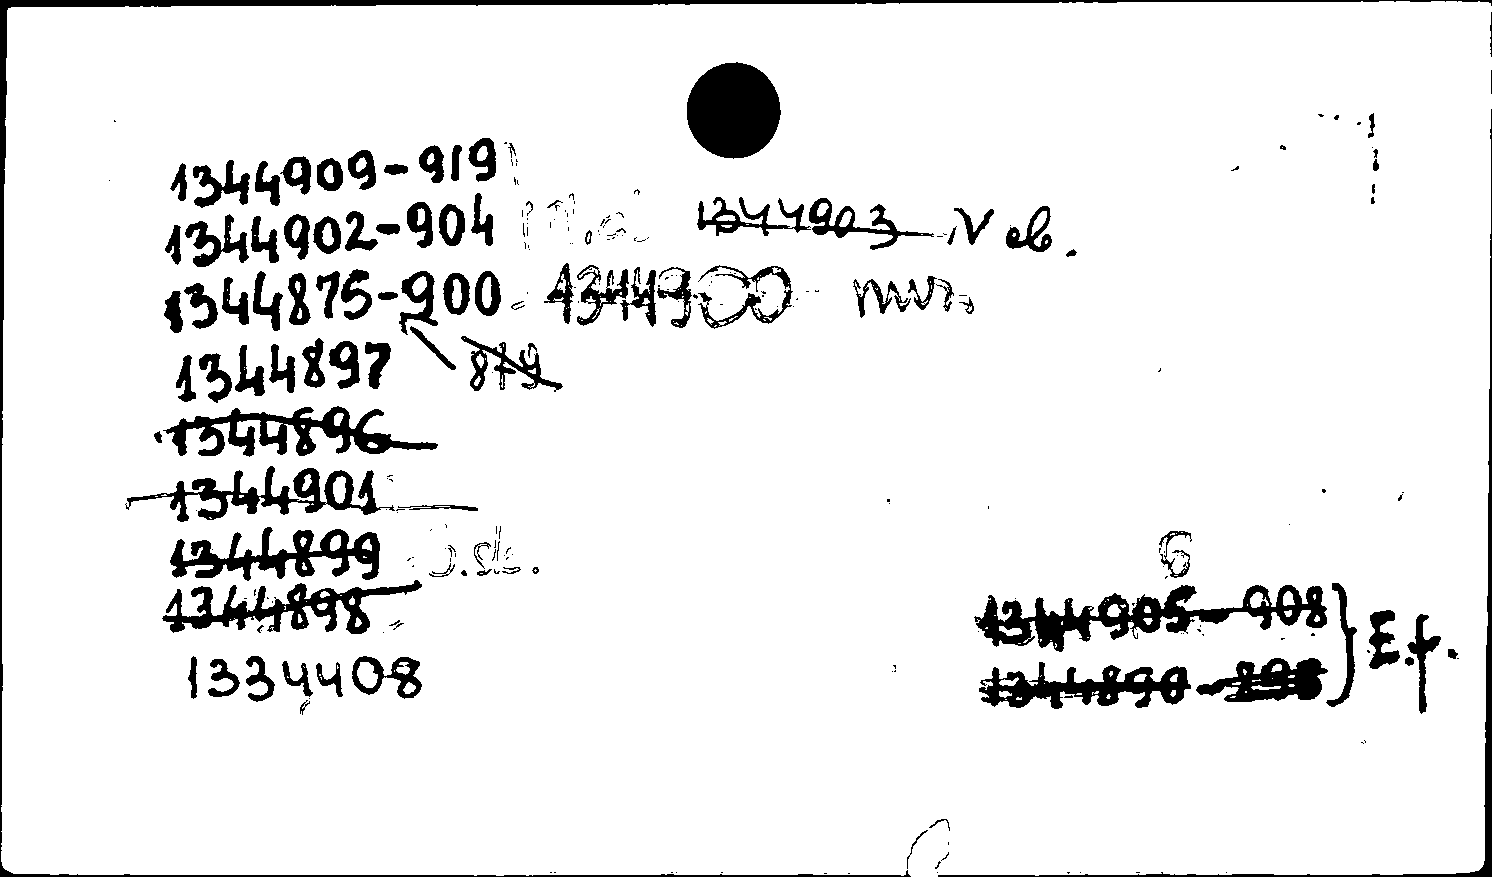 1344909-919
1344902-904 1344903 N eb.
1344875-900 1344900 mus.
879
1344897
1344896
1344901
1344899
1344898
1334408
6
1344905-908
1344890-898 } E.f.